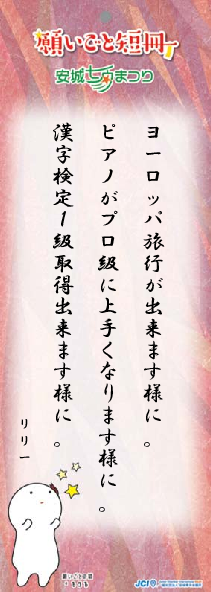 願いごと短冊
安城七夕まつり
ヨーロッパ旅行が出来ます様に。
ピアノがプロ級に上手くなります様に。
漢字検定1級取得出来ます様に。
りりー
願いごと
JCI